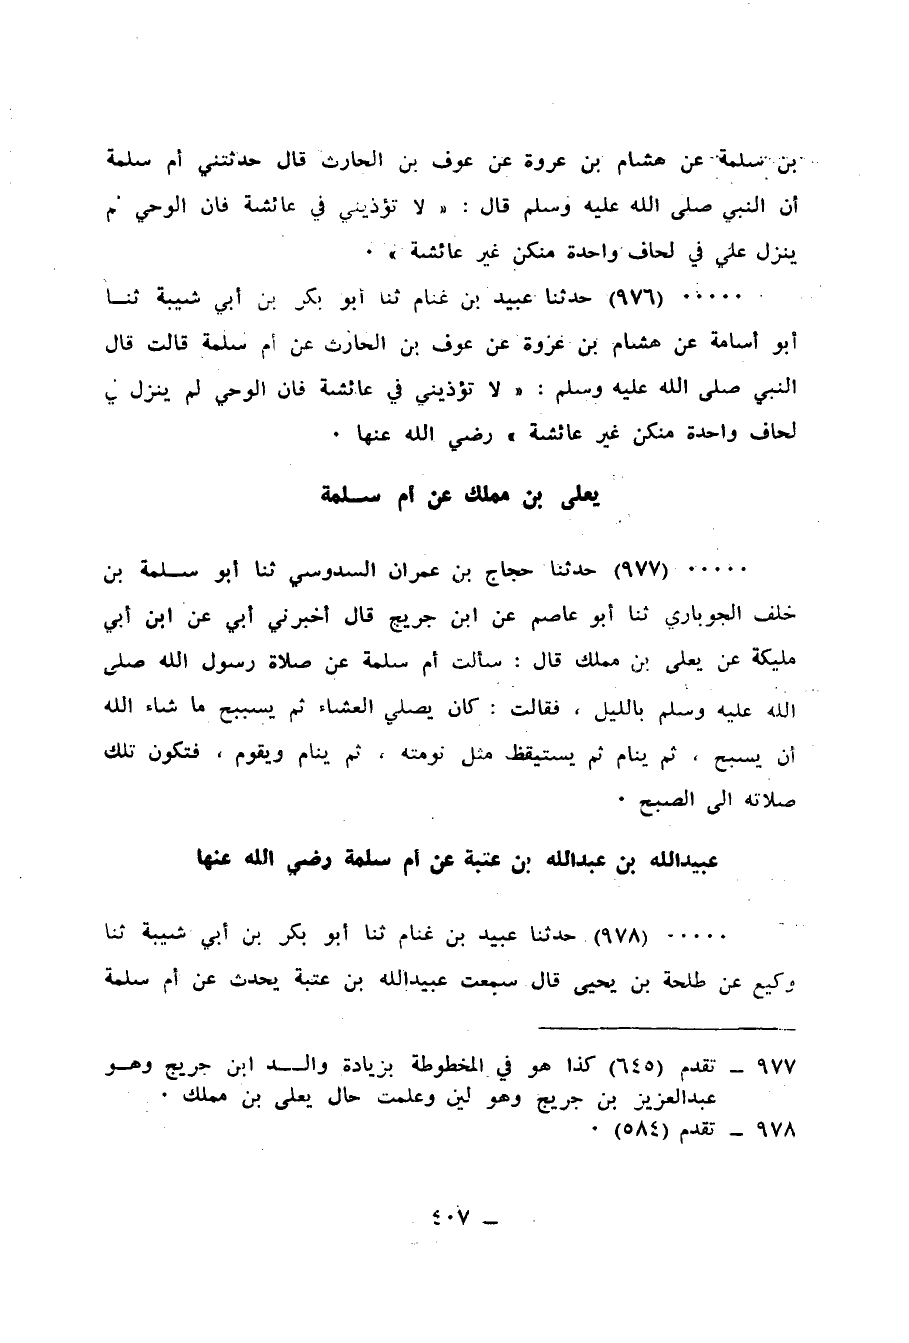 بن سلمة عن هشام بن عروة عن عوف بن الحارث قال حدثتني أم سلمة
أن النبي صلى الله عليه وسلم قال : « لا تؤذيني في عائشة فان الوحي لم
ينزل علي في لحاف واحدة منكن غير عائشة » ٠
٠٠٠٠٠ (٩٧٦) حدثنا عبيد بن غنام ثنا أبو بكر بن أبي شيبة ثنا
أبو أسامة عن هشام بن عروة عن عوف بن الحارث عن أم سلمة قالت قال
النبي صلى الله عليه وسلم : « لا تؤذيني في عائشة فان الوحي لم ينزل في
لحاف واحدة منكن غير عائشة » رضي الله عنها ٠
يعلى بن مملك عن أم سلمة
٠٠٠٠٠ (٩٧٧) حدثنا حجاج بن عمران السدوسي ثنا أبو سلمة بن
خلف الجوباري ثنا أبو عاصم عن ابن جريج قال أخبرني أبي عن ابن أبي
مليكة عن يعلى بن مملك قال : سألت أم سلمة عن صلاة رسول الله صلى
الله عليه وسلم بالليل ، فقالت : كان يصلي العشاء ثم يسبح ما شاء الله
أن يسبح ، ثم ينام ثم يستيقظ مثل نومته ، ثم ينام ويقوم ، فتكون تلك
صلاته الى الصبح ٠
عبيدالله بن عبدالله بن عتبة عن أم سلمة رضي الله عنها
٠٠٠٠٠ (٩٧٨) حدثنا عبيد بن غنام ثنا أبو بكر بن أبي شيبة ثنا
وكيع عن طلحة بن يحيى قال سمعت عبيدالله بن عتبة يحدث عن أم سلمة
٩٧٧ ــ تقدم (٦٤٥) كذا هو في المخطوطة بزيادة والد ابن جريج وهو
عبدالعزيز بن جريج وهو لين وعلمت حال يعلى بن مملك ٠
٩٧٨ ــ تقدم (٥٨٤) ٠
ــ ٤٠٧